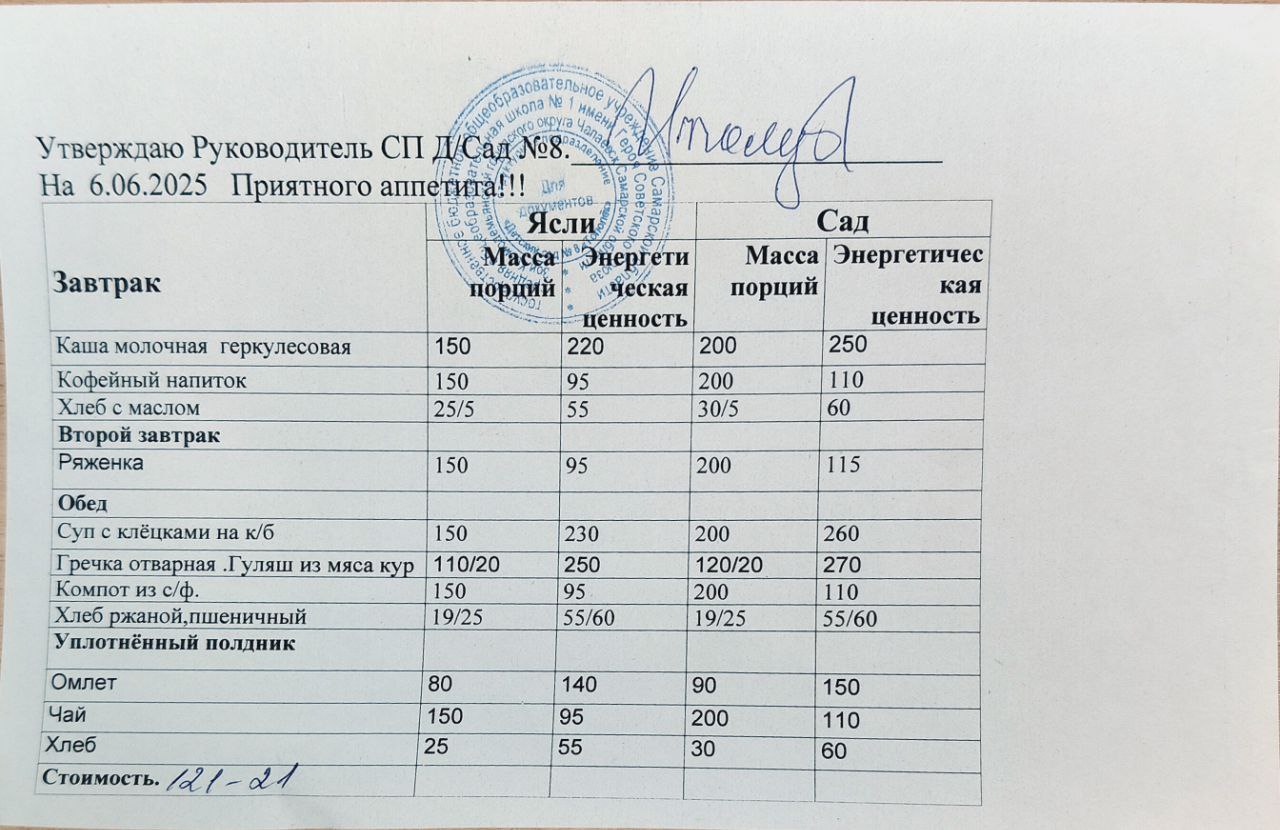 Утверждаю Руководитель СП Д/Сад №8.
На 6.06.2025 Приятного аппетита!!!
Ясли Сад
Завтрак Масса порций Энергетическая ценность Масса порций Энергетическая ценность
Каша молочная геркулесовая 150 220 200 250
Кофейный напиток 150 95 200 110
Хлеб с маслом 25/5 55 30/5 60
Второй завтрак
Ряженка 150 95 200 115
Обед
Суп с клёцками на к/б 150 230 200 260
Гречка отварная .Гуляш из мяса кур 110/20 250 120/20 270
Компот из с/ф. 150 95 200 110
Хлеб ржаной,пшеничный 19/25 55/60 19/25 55/60
Уплотнённый полдник
Омлет 80 140 90 150
Чай 150 95 200 110
Хлеб 25 55 30 60
Стоимость. 121-21
Для
документов